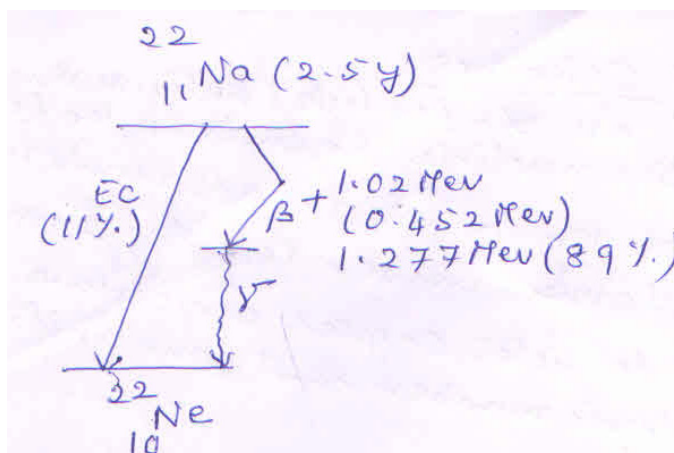 22
11 Na (2.5 y)
EC
(11%.)
β + 1.02 Mev
(0.452 Mev)
1.277 Mev (89%.)
γ
22
10 Ne